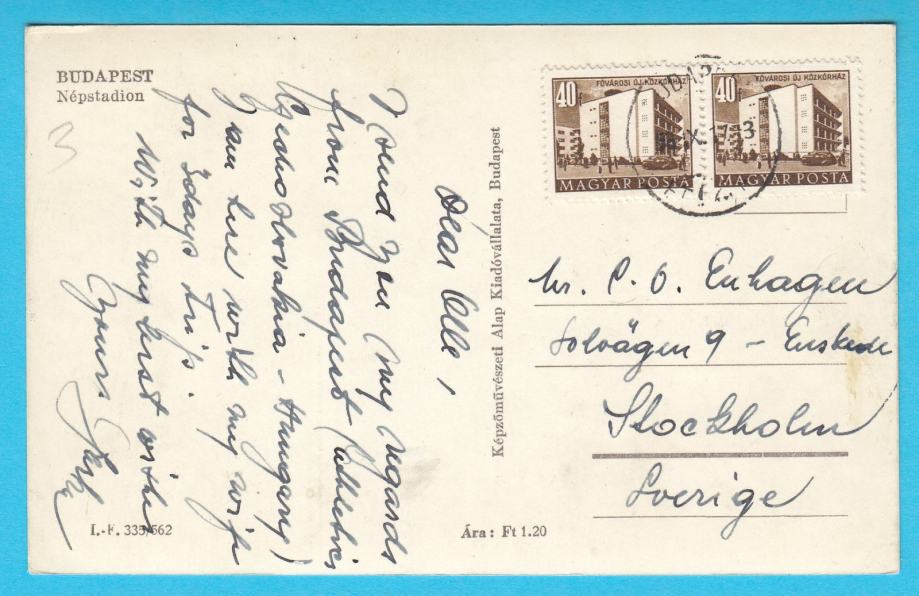 BUDAPEST
Népstadion
Dear Olle,
I send you my regards
from Budapest (athletics
Czechoslovakia - Hungary)
I am here with my wife
for 3 days
With my best wishes
Yours
I.-F. 335/562
Ára: Ft 1.20
Képzőművészeti Alap Kiadóvállalata, Budapest
40
FŐVÁROSI ÚJ KÖZKÓRHÁZ
MAGYAR POSTA
40
FŐVÁROSI ÚJ KÖZKÓRHÁZ
MAGYAR POSTA
Mr. P. O. Enhagen
Solvägen 9 - Enskede
Stockholm
Sverige